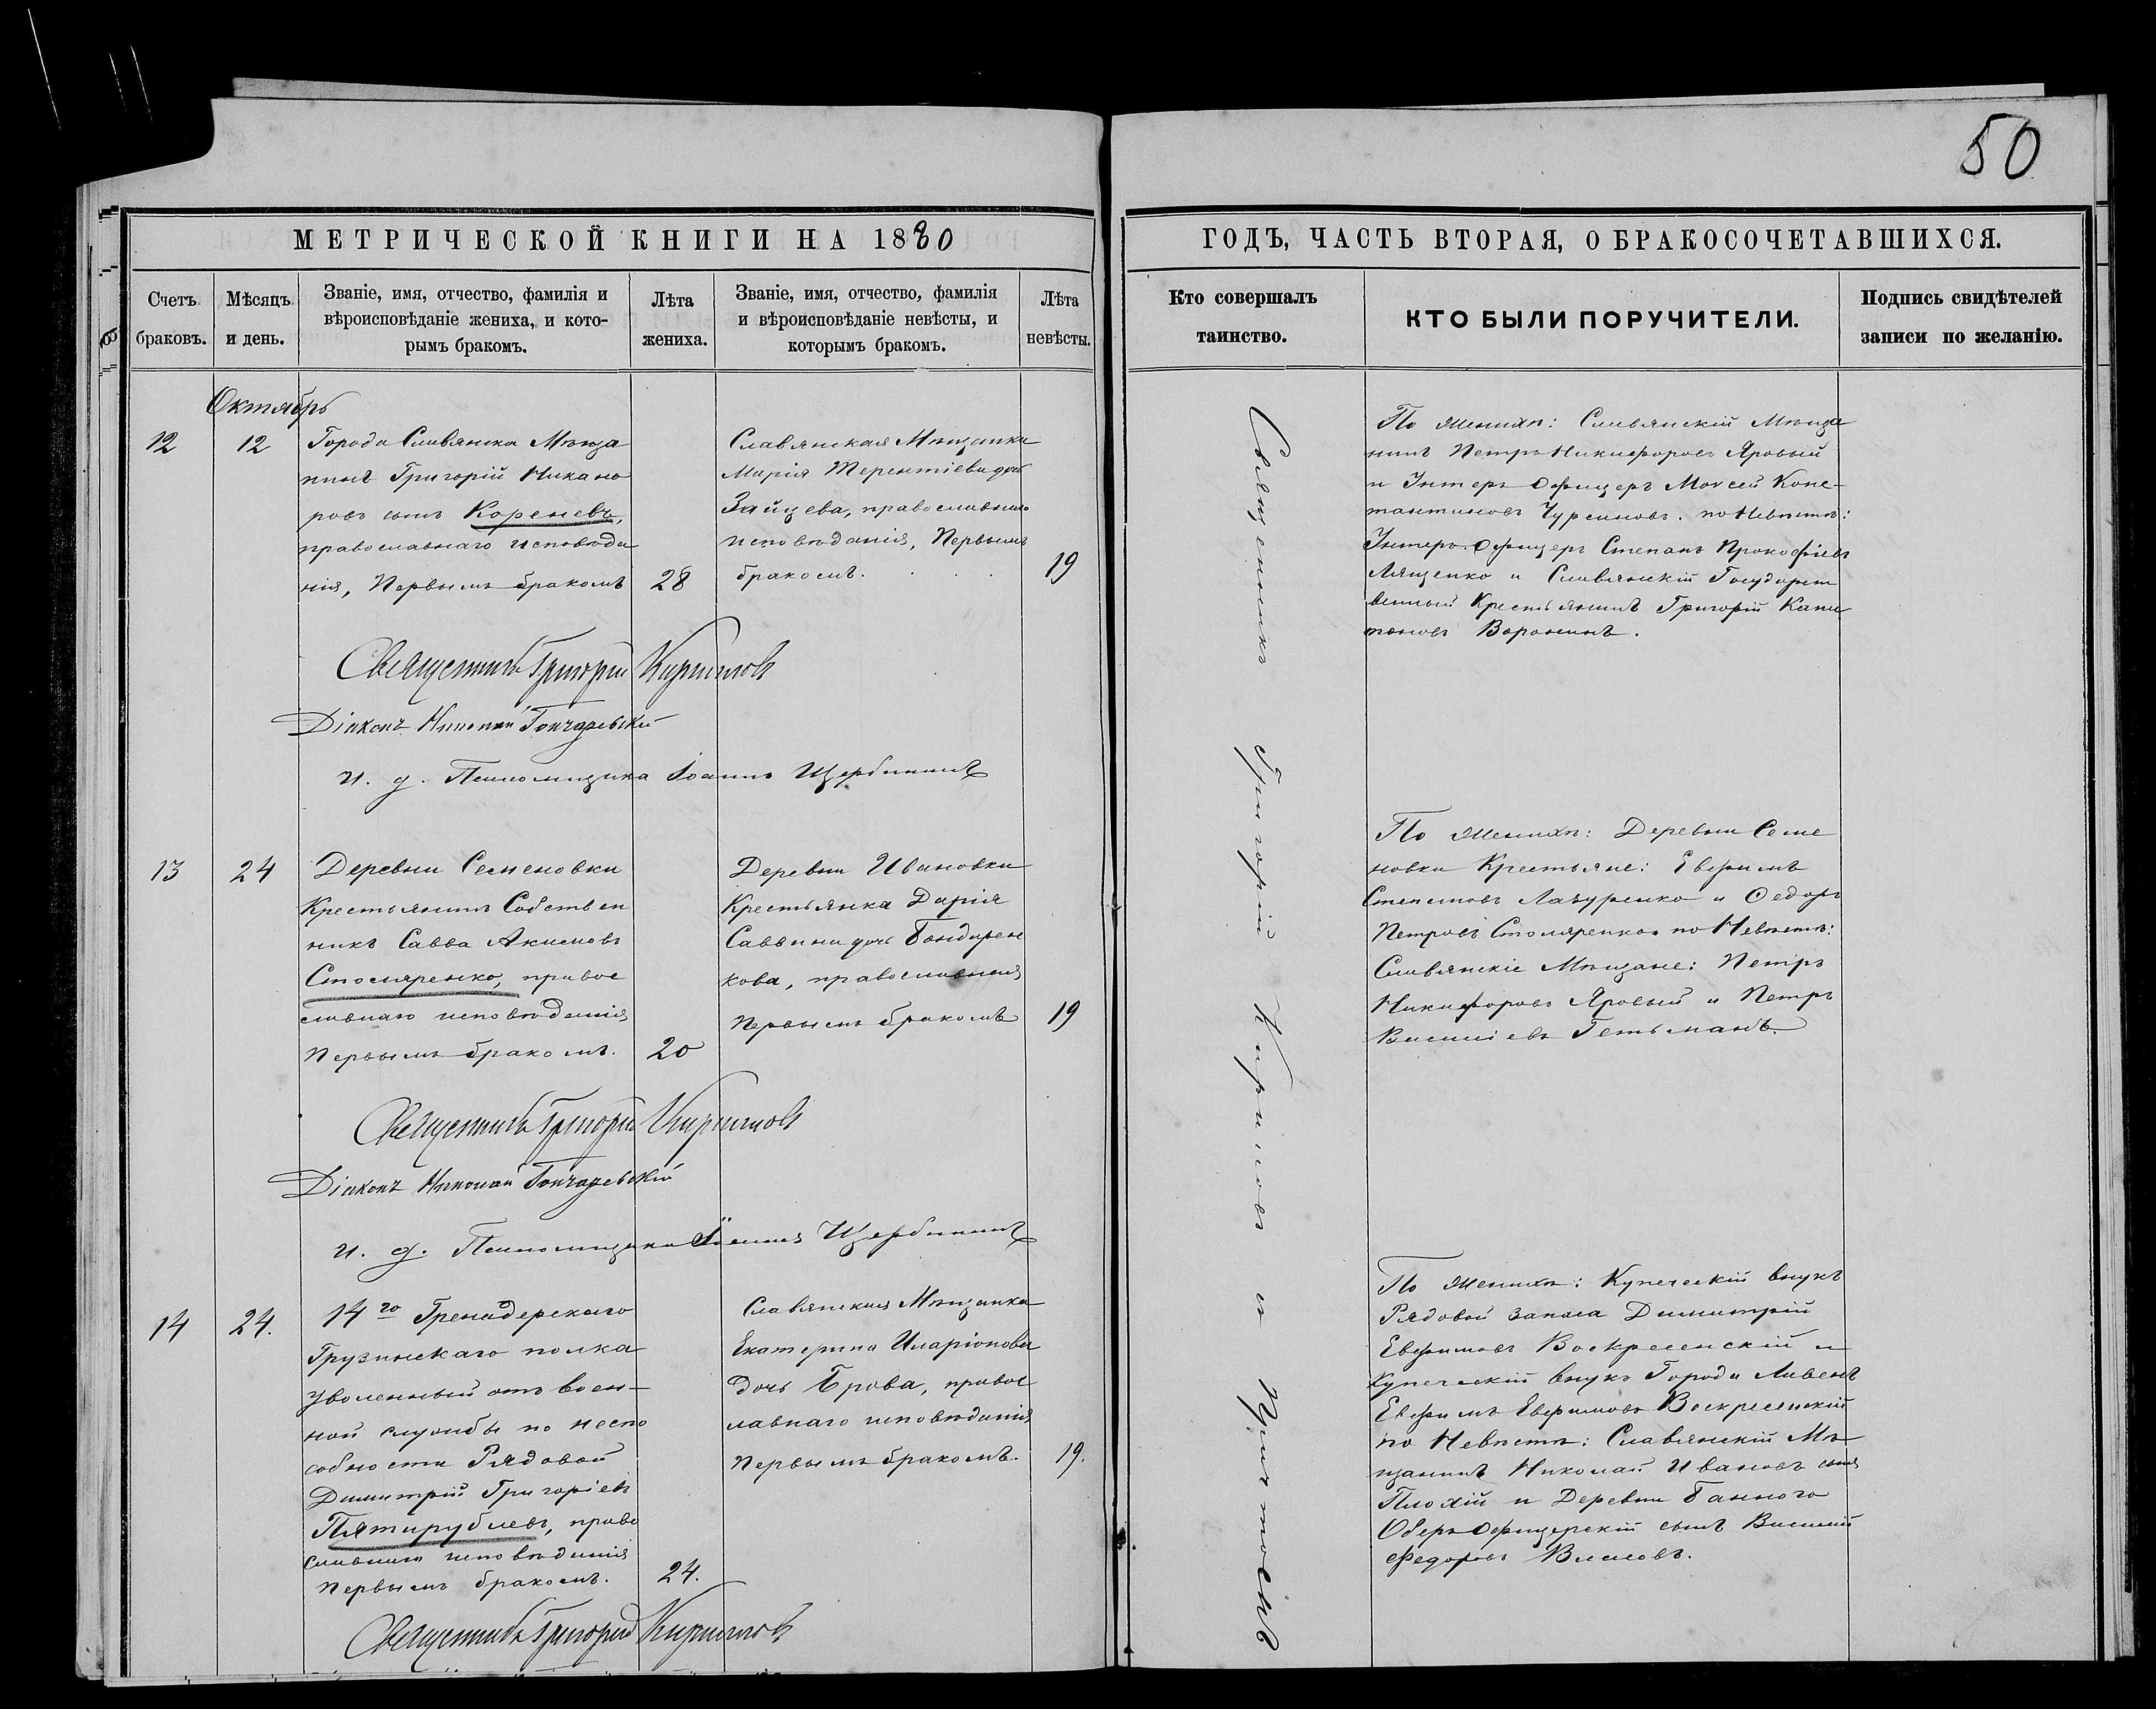 50
МЕТРИЧЕСКОЙ КНИГИ НА 1880
ГОДЪ, ЧАСТЬ ВТОРАЯ, О БРАКОСОЧЕТАВШИХСЯ.
Счетъ
браковъ.
Мѣсяцъ
и день.
Званіе, имя, отчество, фамилія и
вѣроисповѣданіе жениха, и кото-
рымъ бракомъ.
Лѣта
жениха.
Званіе, имя, отчество, фамилія
и вѣроисповѣданіе невѣсты, и
которымъ бракомъ.
Лѣта
невѣсты.
Кто совершалъ
таинство.
КТО БЫЛИ ПОРУЧИТЕЛИ.
Подпись свидѣтелей
записи по желанію.
Октябрь
12
12
Города Славянска Мѣща
нинъ Григорій Никано
ровъ сынъ Кореневъ,
православнаго исповѣда
нія, Первымъ бракомъ
28
Славянская Мѣщанка
Марія Терентіева дочь
Зайцева, православнаго
исповѣданія, Первымъ
бракомъ.
19
Священникъ Григорій Кириловъ
Діаконъ Николай Гончаревскій
И. д. Псаломщика Іоаннъ Щербининъ
По женихѣ: Славянскій Мѣща
нинъ Петръ Никифоровъ Яровый
и Унтеръ Офицеръ Моѵсей Конс-
тантиновъ Чурсиновъ. по Невѣстѣ:
Унтеръ-Офицеръ Степанъ Прокофіевъ
Лященко и Славянскій Государст
венный Крестьянинъ Григорій Капи
тоновъ Воронинъ.
13
24
Деревни Семеновки
Крестьянинъ Собствен
никъ Савва Акимовъ
Столяренко, правос
лавнаго исповѣданія
Первымъ бракомъ.
20
Деревни Ивановки
Крестьянка Дарія
Саввина дочь Бондарен
кова, православныя
Первымъ бракомъ
19
Священникъ Григорій Кириловъ
Діаконъ Николай Гончаревскій
И. д. Псаломщика Іоаннъ Щербининъ
По женихѣ: Деревни Семе
новки Крестьяне: Евфимъ
Степановъ Лазуренко и Ѳедоръ
Петровъ Столяренко по Невѣстѣ:
Славянскіе Мѣщане: Петръ
Никифоровъ Яровый и Петръ
Василіевъ Гетьманъ.
14
24.
14го Гренадерскаго
Грузинскаго полка
уволенный отъ воен-
ной службы по неспо
собности Рядовой
Димитрій Григоріевъ
Пятирублевъ, право
славнаго исповѣданія
Первымъ бракомъ.
24.
Славянская Мѣщанка
Екатерина Иларіонова
дочь Брова, правос
лавнаго исповѣданія
Первымъ бракомъ.
19.
Священникъ Григорій Кириловъ
По женихѣ: Купеческій внукъ
Рядовой запаса Димитрій
Евфимовъ Воскресенскій и
Купеческій внукъ Города Ливенъ
Евфимъ Евфимовъ Воскресенскій
по Невѣстѣ: Славянскій Мѣ
щанинъ Николай Ивановъ сынъ
Плохій и Деревни Банного
Оберъ-Офицерскій сынъ Василій
Федоровъ Власовъ.
Священникъ Григорій Кириловъ съ Причтомъ